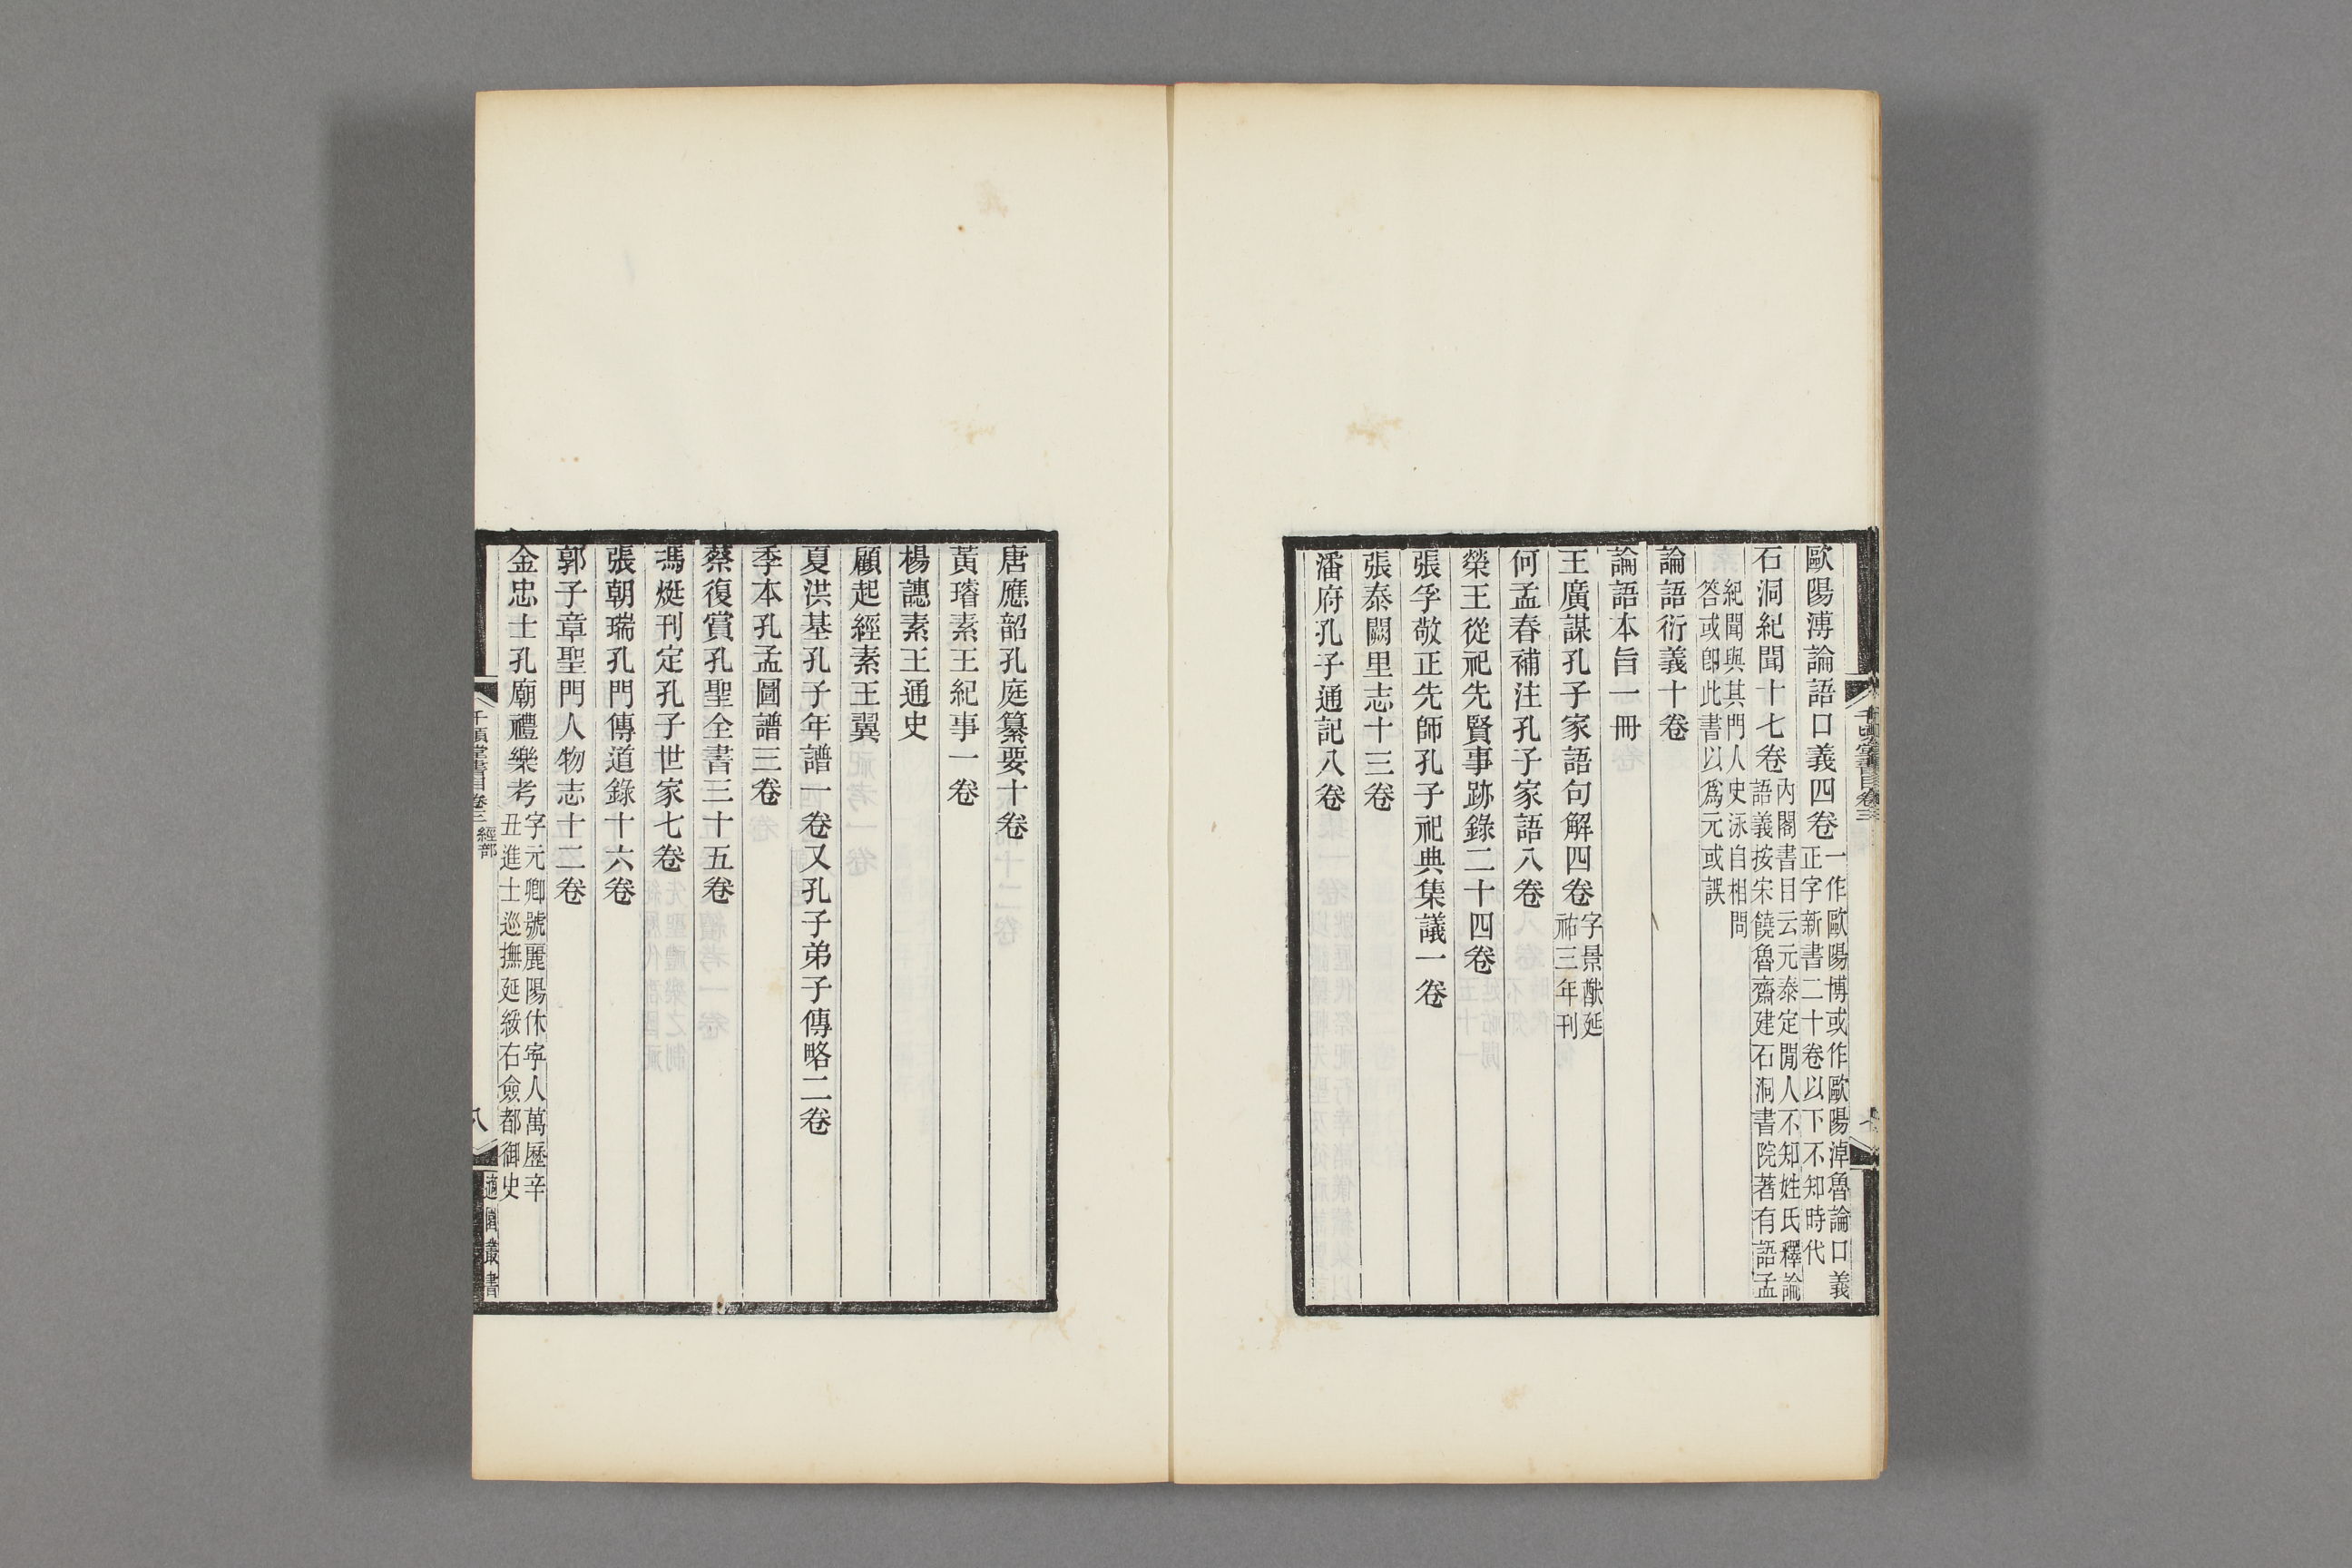 歐陽溥論語口義四卷
一作歐陽博或作歐陽淖魯論口義
正字新書二十卷以下不知時代
石洞紀聞十七卷
內閣書目云元泰定閒人不知姓氏釋論
語義按宋饒魯齋建石洞書院著有語孟
紀聞與其門人史泳自相問
答或卽此書以爲元或誤
論語衍義十卷
論語本旨一冊
王廣謀孔子家語句解四卷
字景猷延
祐三年刊
何孟春補注孔子家語八卷
榮王從祀先賢事跡錄二十四卷
張孚敬正先師孔子祀典集議一卷
張泰闕里志十三卷
潘府孔子通記八卷
唐應韶孔庭纂要十卷
黃璿素王紀事一卷
楊譓素王通史
顧起經素王翼
夏洪基孔子年譜一卷又孔子弟子傳略二卷
季本孔孟圖譜三卷
蔡復賞孔聖全書三十五卷
馮烶刊定孔子世家七卷
張朝瑞孔門傳道錄十六卷
郭子章聖門人物志十二卷
金忠士孔廟禮樂考
字元卿號麗陽休寧人萬歷辛
丑進士巡撫延綏右僉都御史
千頃堂書目卷三
經部
八
適園叢書